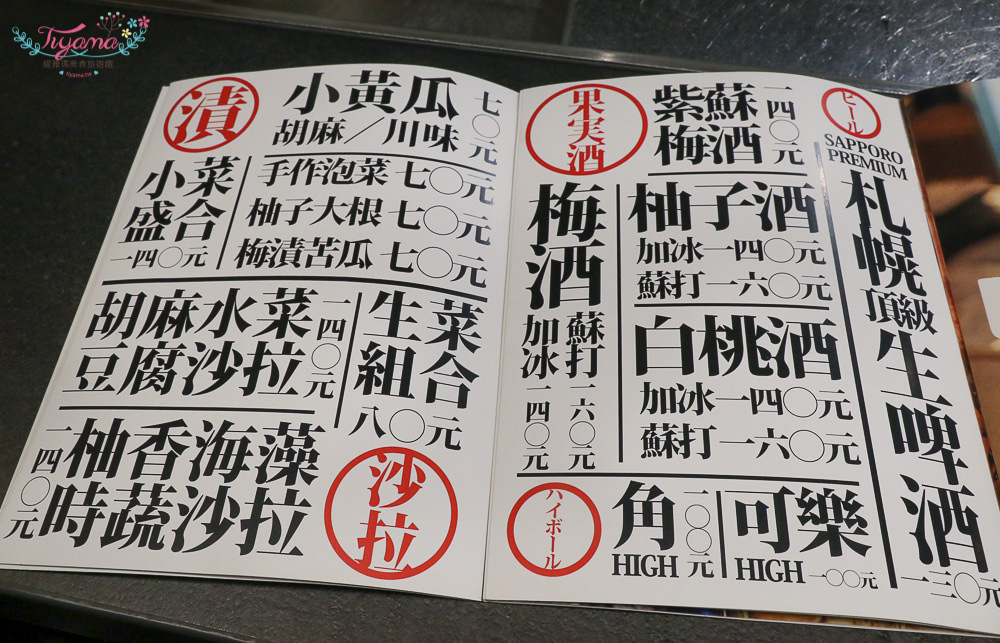 Tiyama
緹雅瑪美食旅遊趣
tiyama.tw
漬
小黃瓜
胡麻/川味
七〇元
小菜
盛合
一四〇元
手作泡菜 七〇元
柚子大根 七〇元
梅漬苦瓜 七〇元
胡麻水菜
豆腐沙拉
一四〇元
生菜
組合
八〇元
柚香海藻
時蔬沙拉
一四〇元
沙拉
果実酒
紫蘇
梅酒
一四〇元
梅酒
加冰 一四〇元
蘇打 一六〇元
柚子酒
加冰 一四〇元
蘇打 一六〇元
白桃酒
加冰 一四〇元
蘇打 一六〇元
ハイボール
角
HIGH
一〇〇元
可樂
HIGH 一〇〇元
ビール
SAPPORO
PREMIUM
札幌頂級生啤酒
一三〇元